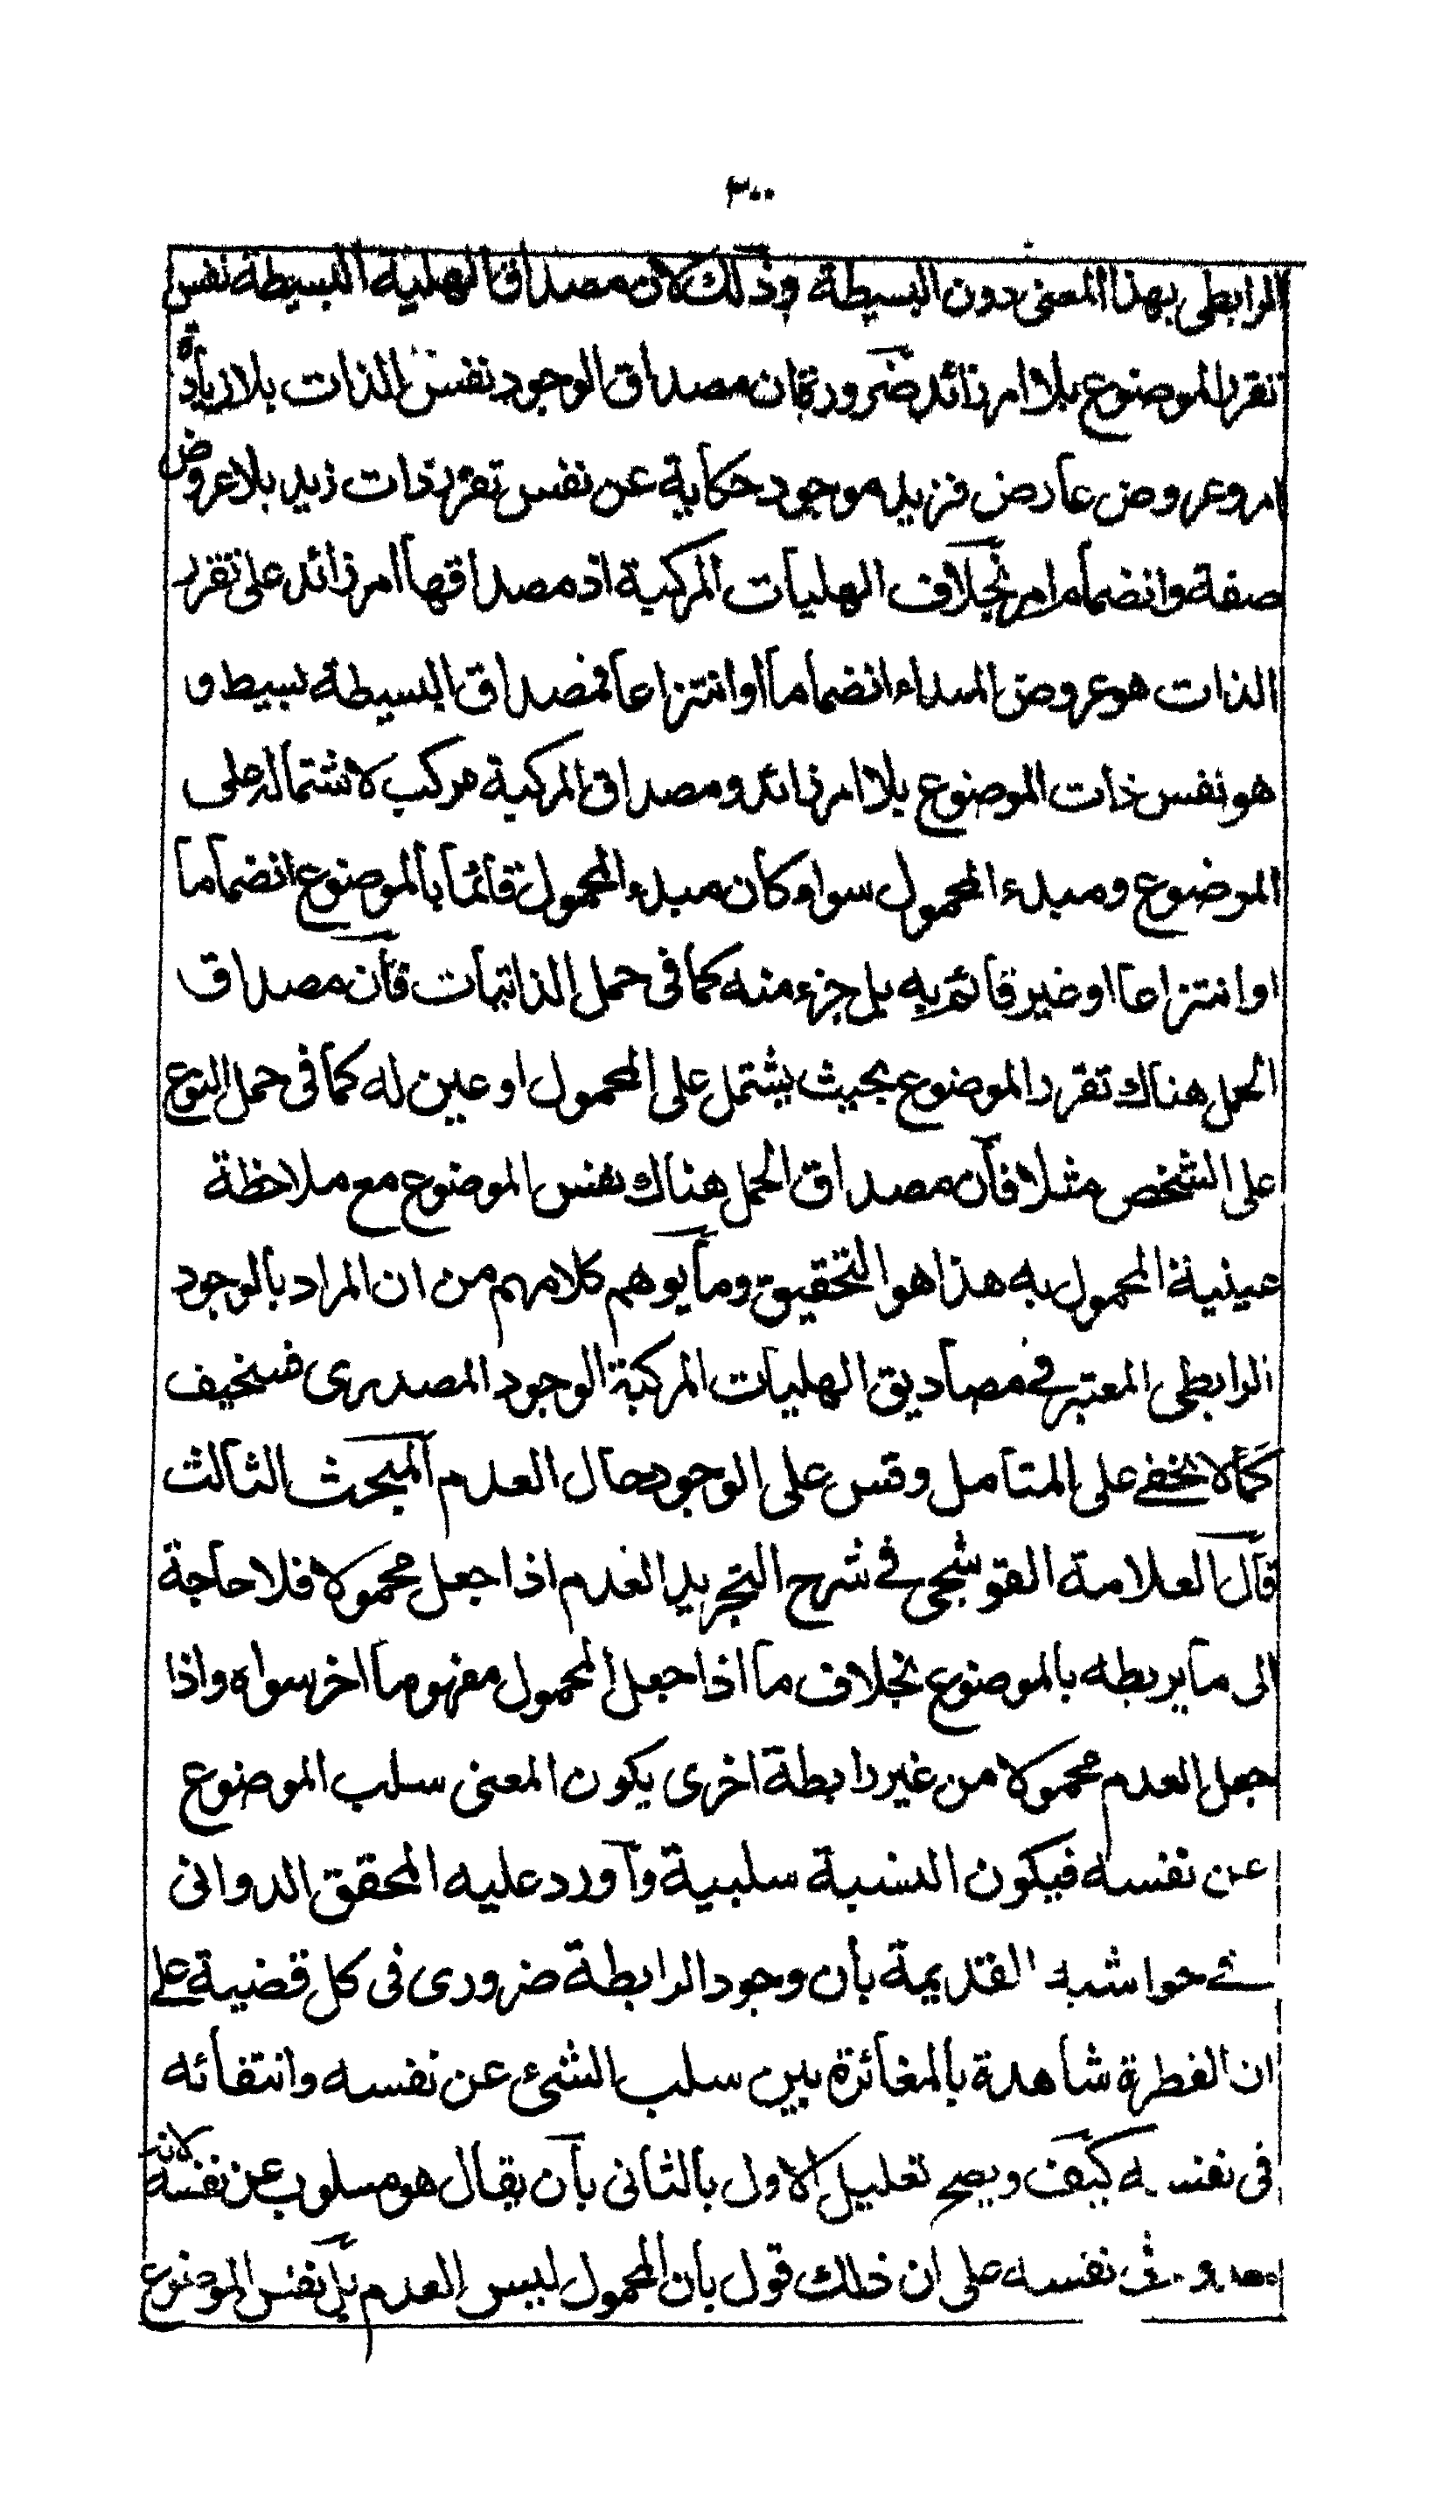 ٣٠٠
الرابطی بهذا المعنی دون البسیطة وذلک لان مصداق الهلیة البسیطة نفس
تقرر الموضوع بلا امر زائد ضرورة ان مصداق الوجود نفس الذات بلا زیادة
امر وعروض عارض فزید موجود حکایة عن نفس تقرر ذات زید بلا عروض
صفة وانضمام امر بخلاف الهلیات المرکبة اذ مصداقها امر زائد علی تقرر
الذات هو عروض المبداء انضماما او انتزاعا فمصداق البسیطة بسیط و
هو نفس ذات الموضوع بلا امر زائد ومصداق المرکبة مرکب لاشتماله علی
الموضوع ومبدء المحمول سواء کان مبدء المحمول قائما بالموضوع انضماما
او انتزاعا او غیر قائم به بل جزء منه کما فی حمل الذاتیات فان مصداق
الحمل هناک تقرر الموضوع بحیث یشتمل علی المحمول او عین له کما فی حمل النوع
علی الشخص مثلا فان مصداق الحمل هناک نفس الموضوع مع ملاحظة
عینیة المحمول به هذا هو التحقیق وما یوهم کلامهم من ان المراد بالوجود
الرابطی المعتبر فی مصادیق الهلیات المرکبة الوجود المصدری فسخیف
کما لا یخفی علی المتامل وقس علی الوجود حال العدم المبحث الثالث
قال العلامة القوشجی فی شرح التجرید العدم اذا جعل محمولا فلا حاجة
الی ما یربطه بالموضوع بخلاف ما اذا جعل المحمول مفهوما اخر سواه واذا
جعل العدم محمولا من غیر رابطة اخری یکون المعنی سلب الموضوع
عن نفسه فیکون النسبة سلبیة واورد علیه المحقق الدوانی
فی حواشیه القدیمة بان وجود الرابطة ضروری فی کل قضیة علی
ان الفطرة شاهدة بالمغائرة بین سلب الشئ عن نفسه وانتفائه
فی نفسه کیف ویصح تعلیل الاول بالثانی بان یقال هو مسلوب عن نفسه لانه
معدوم فی نفسه علی ان ذلک قول بان المحمول لیس العدم بل نفس الموضوع